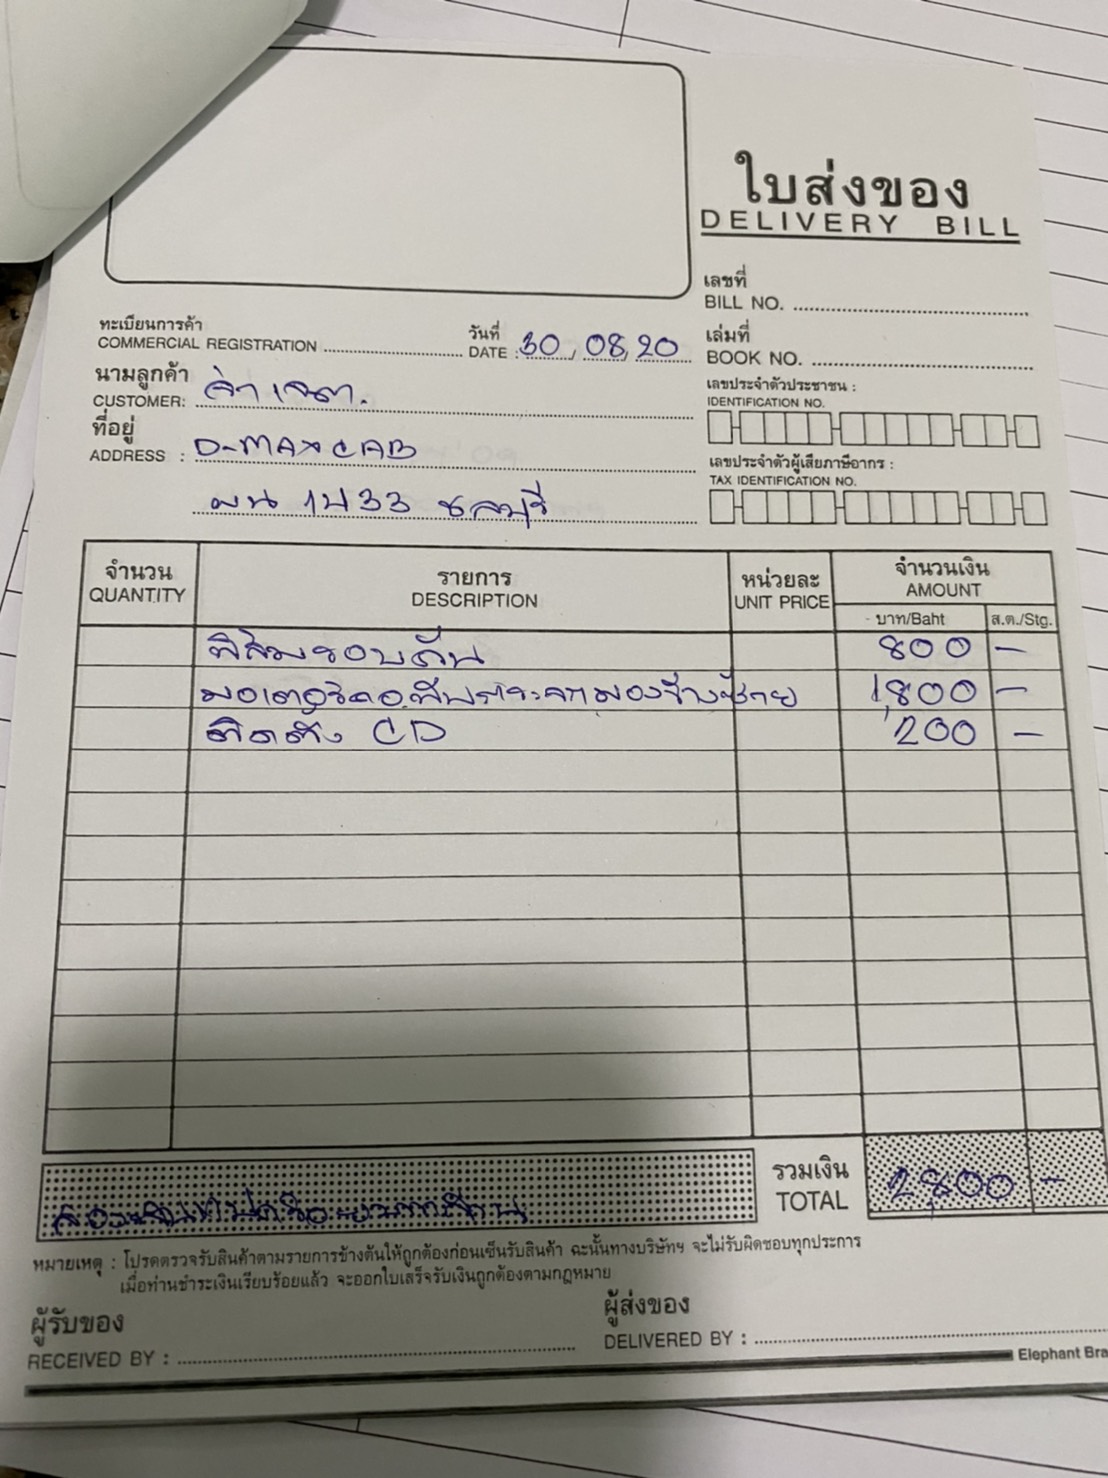 ใบส่งของ
DELIVERY BILL
เลขที่
BILL NO.
ทะเบียนการค้า
COMMERCIAL REGISTRATION
วันที่
DATE : 30, 08, 20
เล่มที่
BOOK NO.
นามลูกค้า
CUSTOMER:
เลขประจำตัวประชาชน :
IDENTIFICATION NO.
ที่อยู่
ADDRESS : D-MAX CAB
เลขประจำตัวผู้เสียภาษีอากร :
TAX IDENTIFICATION NO.
ผน 1433 ชลบุรี
จำนวน รายการ หน่วยละ จำนวนเงิน
QUANTITY DESCRIPTION UNIT PRICE AMOUNT
บาท/Baht ส.ต./Stg.
ฟิล์มรอบคัน 800 -
มอเตอร์ พับกระจกมองข้างซ้าย 1,800 -
ติดตั้ง CD 200 -
รวมเงิน
TOTAL 2,800 -
หมายเหตุ : โปรดตรวจรับสินค้าตามรายการข้างต้นให้ถูกต้องก่อนเซ็นรับสินค้า ฉะนั้นทางบริษัทฯ จะไม่รับผิดชอบทุกประการ
เมื่อท่านชำระเงินเรียบร้อยแล้ว จะออกใบเสร็จรับเงินถูกต้องตามกฎหมาย
ผู้รับของ
RECEIVED BY :
ผู้ส่งของ
DELIVERED BY :
Elephant Bra